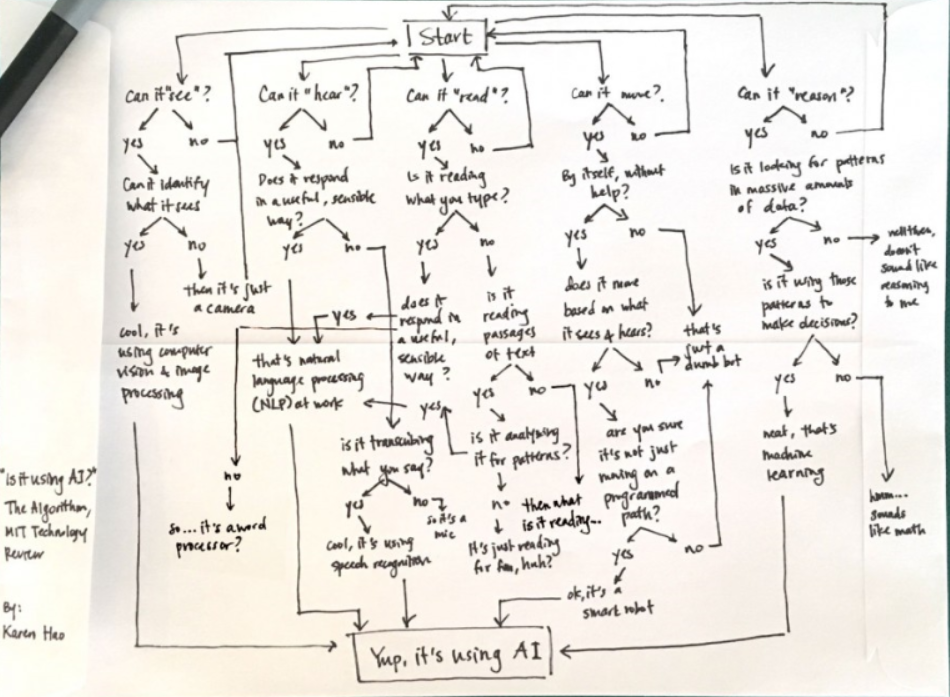 Start
Can it "see"?
yes
no
Can it Identify
what it sees
yes
no
then it's just
a camera
cool, it's
using computer
vision & image
processing
Can it "hear"?
yes
no
Does it respond
in a useful, sensible
way?
yes
no
that's natural
language processing
(NLP) at work
is it transcribing
what you say?
yes
no
so it's a
mic
cool, it's using
speech recognition
Can it "read"?
yes
no
Is it reading
what you type?
yes
no
does it
respond in
a useful,
sensible
way?
yes
no
so... it's a word
processor?
is it
reading
passages
of text
yes
no
is it analyzing
it for patterns?
yes
no
It's just reading
for fun, huh?
then what
is it reading...
Can it move?
yes
no
By itself, without
help?
yes
no
does it move
based on what
it sees & hears?
yes
no
that's
just a
dumb bot
are you sure
it's not just
moving on a
programmed
path?
yes
no
ok, it's a
smart robot
Can it "reason"?
yes
no
Is it looking for patterns
in massive amounts
of data?
yes
no
well then,
doesn't
sound like
reasoning
to me
is it using those
patterns to
make decisions?
yes
no
neat, that's
machine
learning
hmm...
sounds
like math
Yup, it's using AI
"Is it using AI?"
The Algorithm,
MIT Technology
Review
By:
Karen Hao